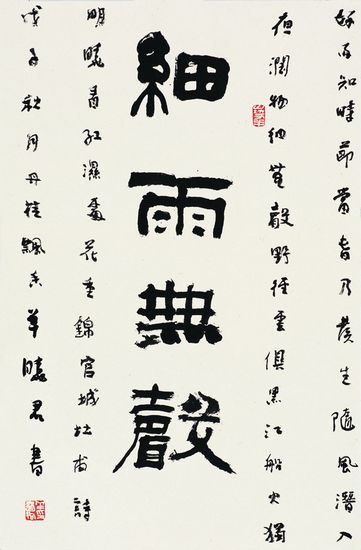 好雨知時節當春乃發生隨風潛入
夜潤物細無聲野徑雲俱黑江船火獨
細雨無聲
明曉看紅濕處花重錦官城杜甫詩
戊子秋月丹桂飄香羊曉君書